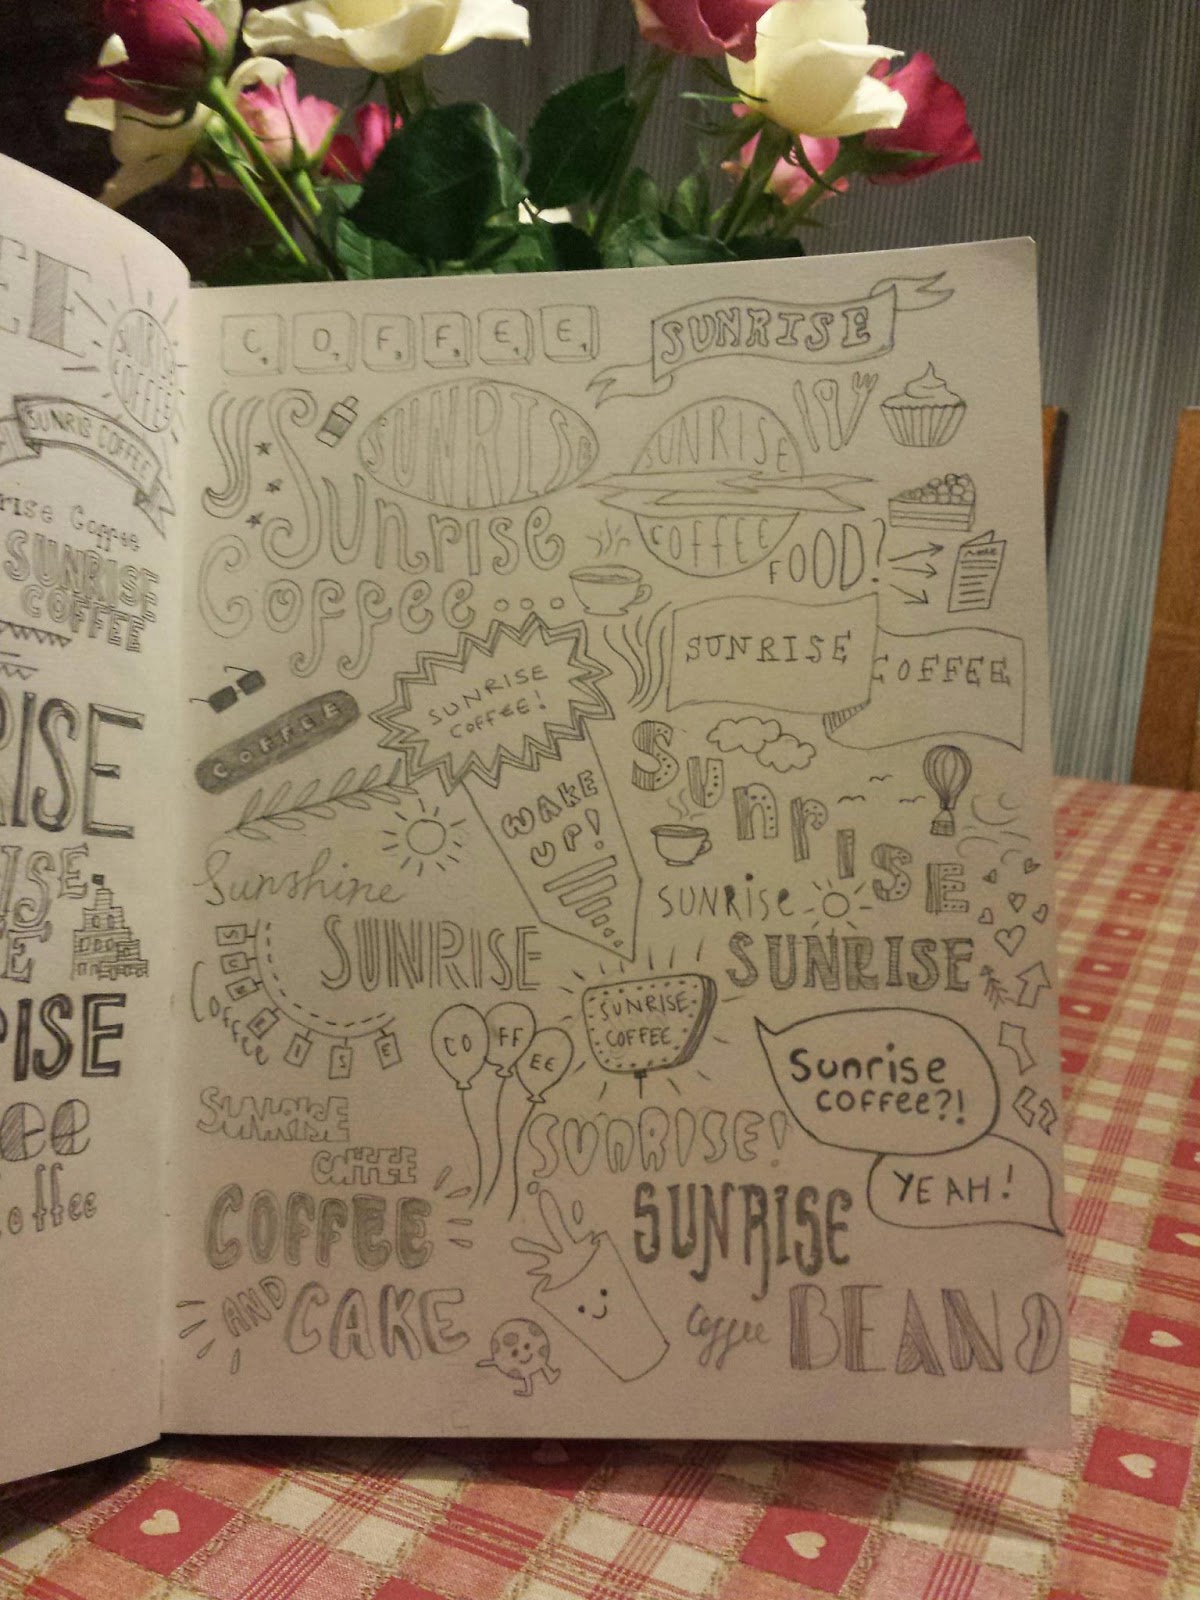 SUNRISE
COFFEE
SUNRIS COFFEE
rise Coffee
SUNRISE
COFFEE
RISE
RISE
COFFEE
SUNRISE
SUNRISE
Sunrise
Coffee...
SUNRISE
COFFEE
FOOD?
SUNRISE
COFFEE
SUNRISE
COFFEE!
COFFEE
WAKE
UP!
Sunrise
Sunshine
SUNRISE
SUNRISE
SUNRISE
Coffee
SUNRISE
COFFEE
CO FF EE
Sunrise
coffee?!
YEAH!
SUNRISE
COFFEE
SUNRISE!
COFFEE
AND CAKE
SUNRISE
Coffee BEAN